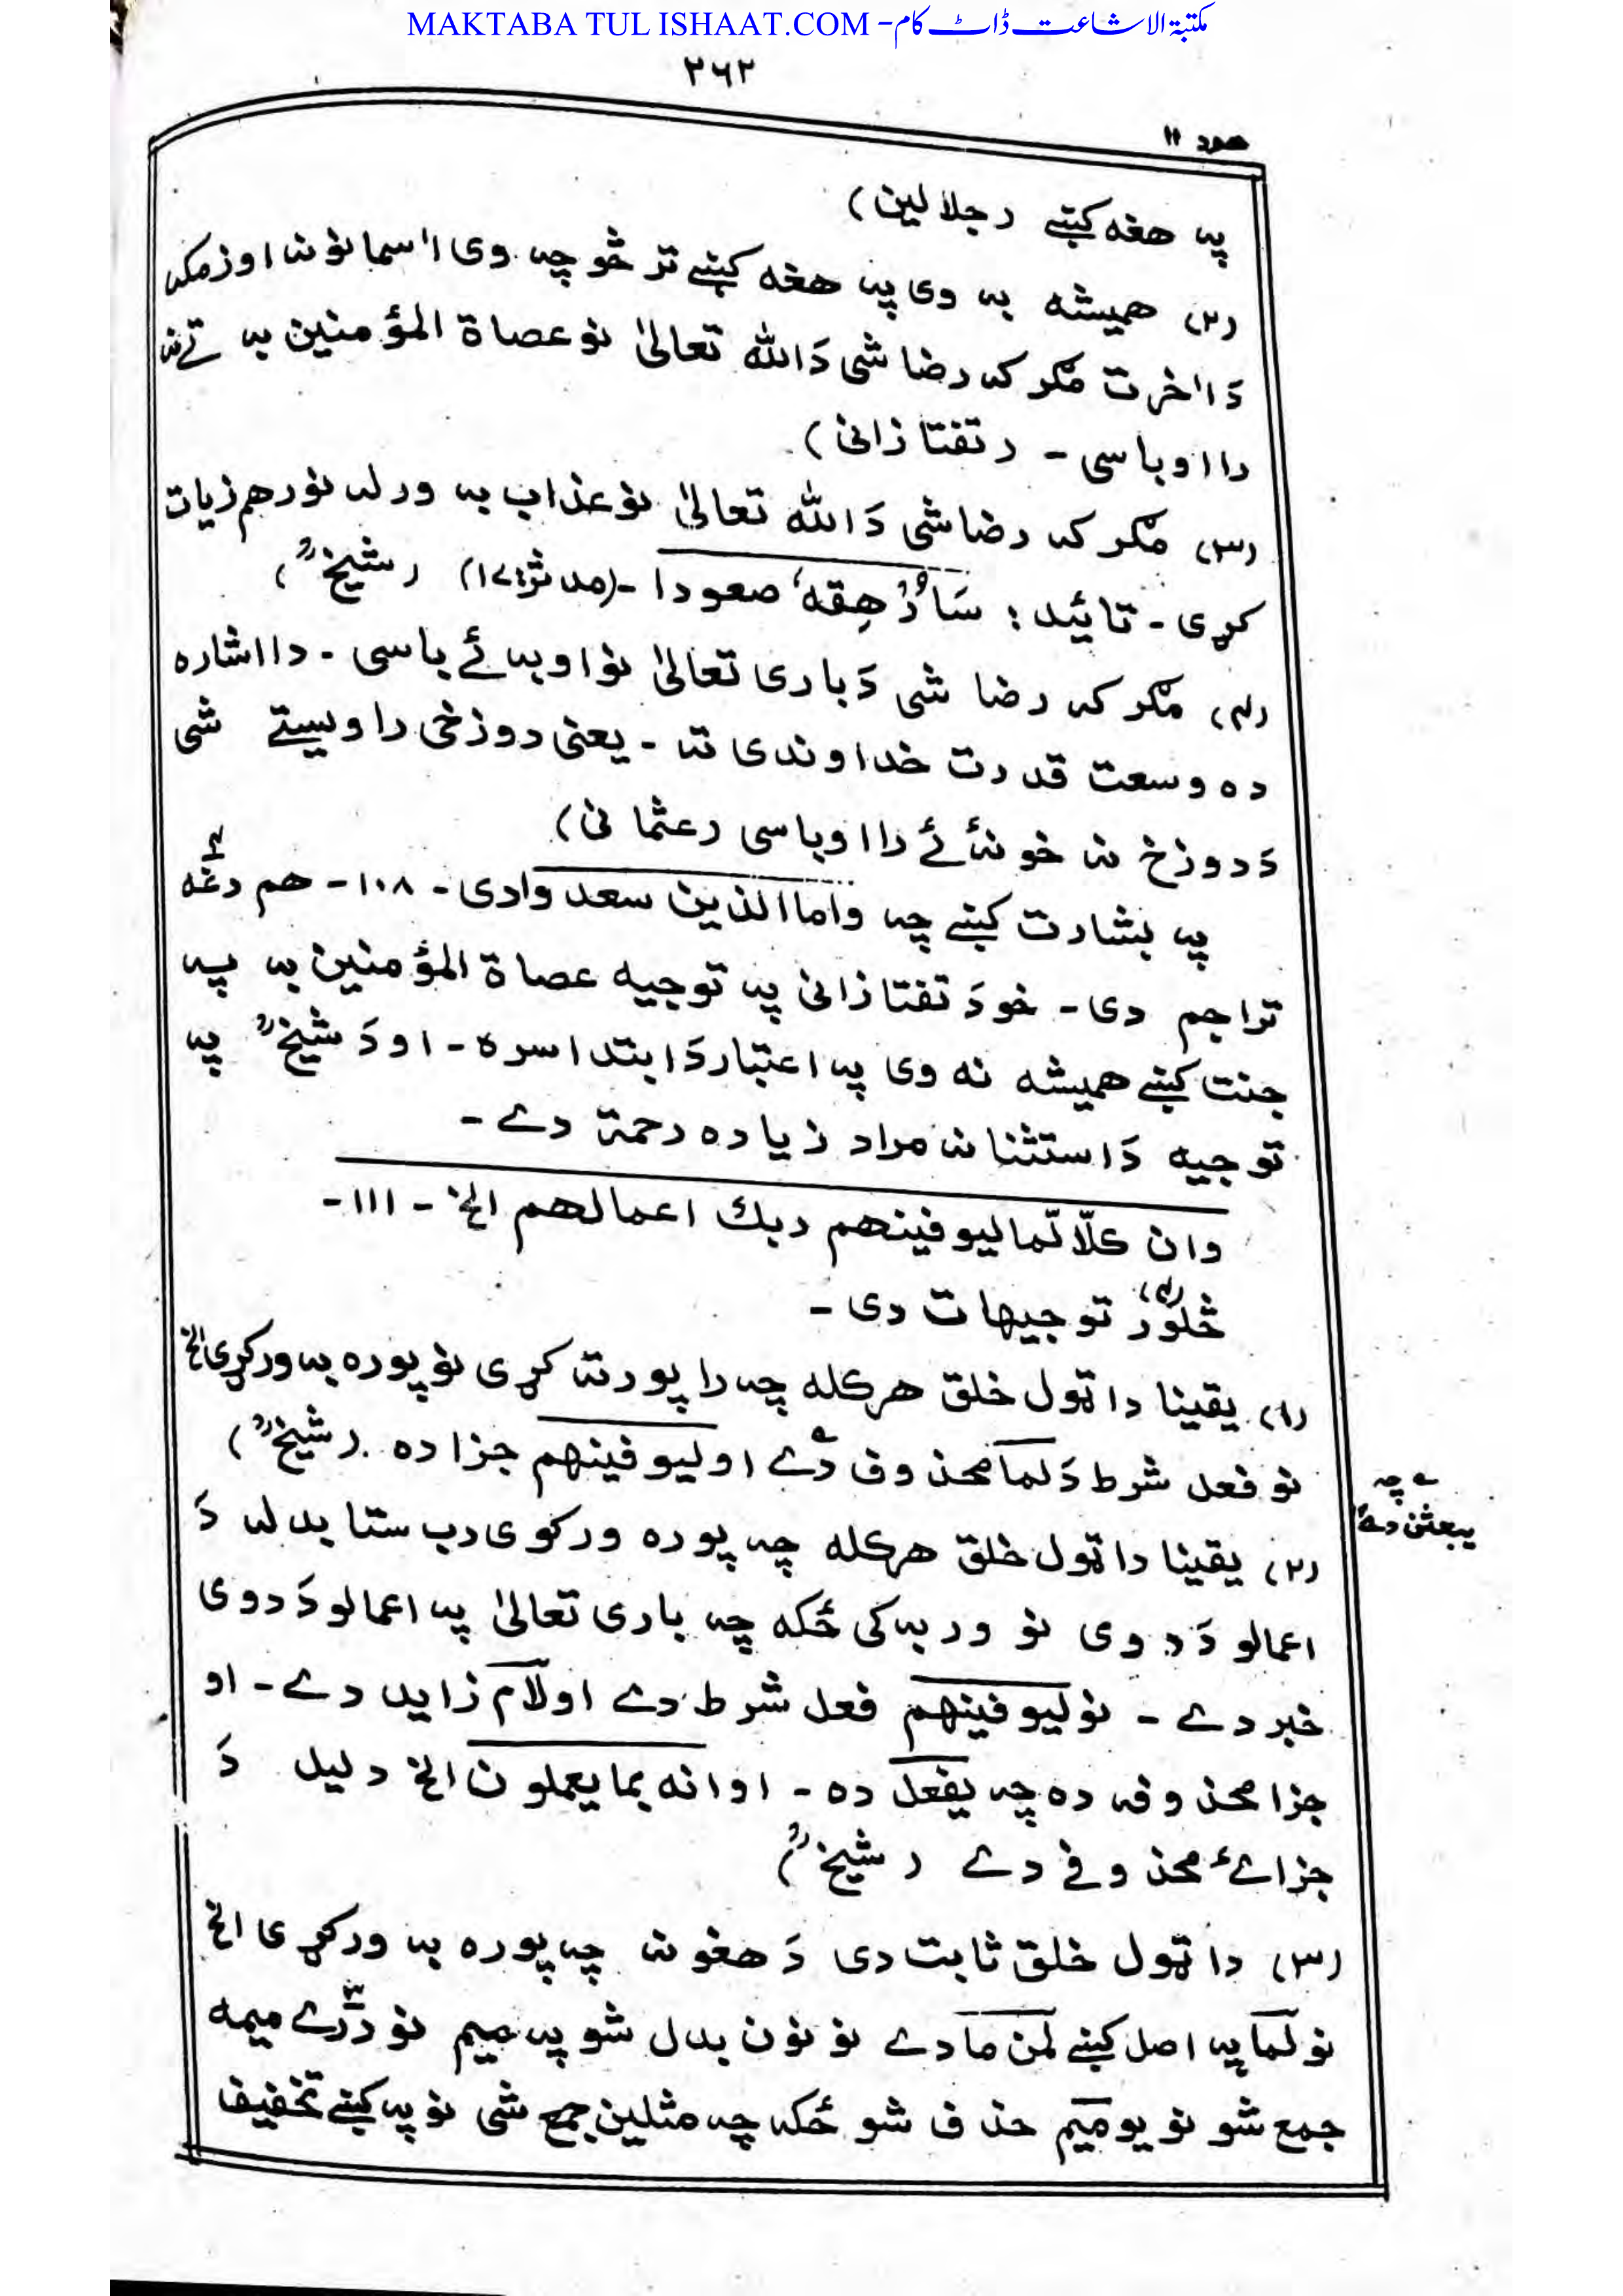 MAKTABA TUL ISHAAT.COM - مکتبۃ الاشاعت ڈاٹ کام
۲۶۲
هود ۱۱
پہ هغه کښے (جلالین)
(۲) همیشه بہ وی پہ هغه کښے تر څو چہ وی اٰسمانونہ او زمکہ
دَ اٰخرت مگر کہ رضا شی دَ الله تعالیٰ نو عصاة المؤمنین بہ تےنہ
را اوباسی - (تفتازانی)
(۳) مگر کہ رضا شی دَ الله تعالیٰ نو عذاب بہ ورلہ نور هم زیات
کړی - تائید : سَاُرْهِقهٗ صعودا - (مدثر:۱۷) (شیخؒ)
(۴) مگر کہ رضا شی دَ باری تعالیٰ نو او بہ ئے باسی - دا اشاره
ده وسعت قدرت خداوندی تہ - یعنی دوزخی را ویستے شی
دَ دوزخ نہ خو نہ ئے را اوباسی (عثمانی)
پہ بشارت کښے چہ واما الذین سعدوا دی - ۱۰۸ - هم دغه ۴
تراجم دی - خو دَ تفتازانی پہ توجیه عصاة المؤمنین بہ پہ
جنت کښے همیشه نه وی پہ اعتبار دَ ابتدا سره - او دَ شیخؒ پہ
توجیه دَ استثنا نہ مراد زیاده رحمة دے -
وان کلّا لّما لیوفینهم ربك اعمالهم الخ - ۱۱۱ -
څلوَرْ (۴) توجیهات دی -
(۱) یقینا دا ټول خلق هرکله چہ را پورتہ کړی نو پوره بہ ورکړی الخ
نو فعل شرط دَ لما محذوف دے ؎ او لیوفینهم جزا ده (شیخؒ)
؎ چہ
یبعثن دے
(۲) یقینا دا ټول خلق هرکله چہ پوره ورکوی رب ستا بدلہ دَ
اعمالو دَ دوی نو ور بہ کی ځکه چہ باری تعالیٰ پہ اعمالو دَ دوی
خبر دے - نو لیوفینهم فعل شرط دے او لام زاید دے - او
جزا محذوفہ ده چہ یفعل ده - او انه بما یعملون الخ دلیل دَ
جزائے محذوفے دے (شیخؒ)
(۳) دا ټول خلق ثابت دی دَ هغو نہ چہ پوره بہ ورکړی الخ
نو لما پہ اصل کښے لمن ما دے نو نون بدل شو پہ میم نو درے ۳ میمه
جمع شو نو یو میم حذف شو ځکہ چہ مثلین جمع شی نو پہ کښے تخفیف